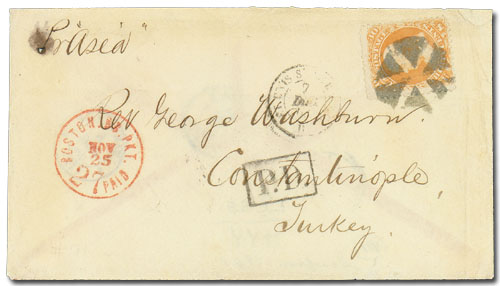 "Pr Asia"
Rev George Washburn.
Constantinople,
Turkey.
BOSTON BR. PKT
NOV
25
27
PAID
P.D.